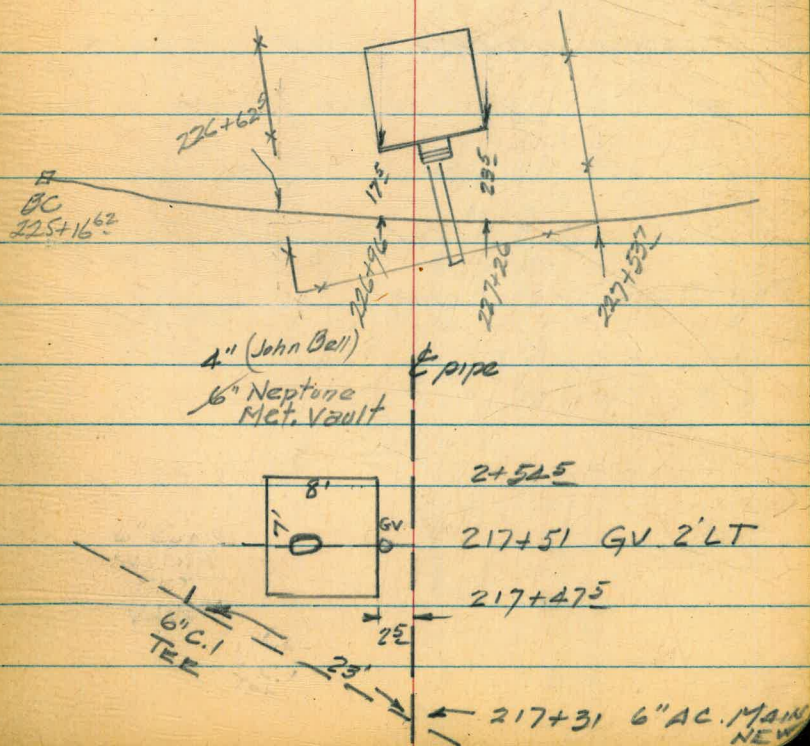 226+62⁵
BC
225+16⁶²
17⁵
23⁵
226+96
227+26
227+53⁷
4" (John Bell)
6" Neptune
Met. Vault
℄ pipe
8'
7'
GV
2+54⁵
217+51 GV. 2' LT
217+47⁵
2⁵
6" C.I
TEE
23'
217+31 6" AC. MAIN
NEW